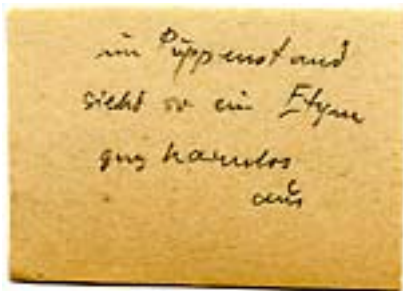 im Puppenstand
sieht so ein Etym
ganz harmlos
aus